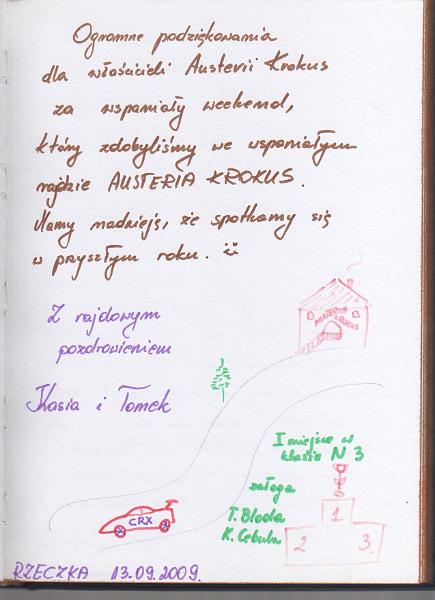 Ogromne podziękowania
dla właścicieli Austerii Krokus
za wspaniały weekend,
który zdobyliśmy we wspaniałym
rajdzie AUSTERIA KROKUS.
Mamy nadzieję, że spotkamy się
w przyszłym roku.
Z rajdowym
pozdrowieniem
Kasia i Tomek
AUSTERIA
KROKUS
I miejsce w
klasie N 3
załoga
T. Bloda
K. Cebula
1
2
3.
CRX
RZECZKA 13.09.2009.